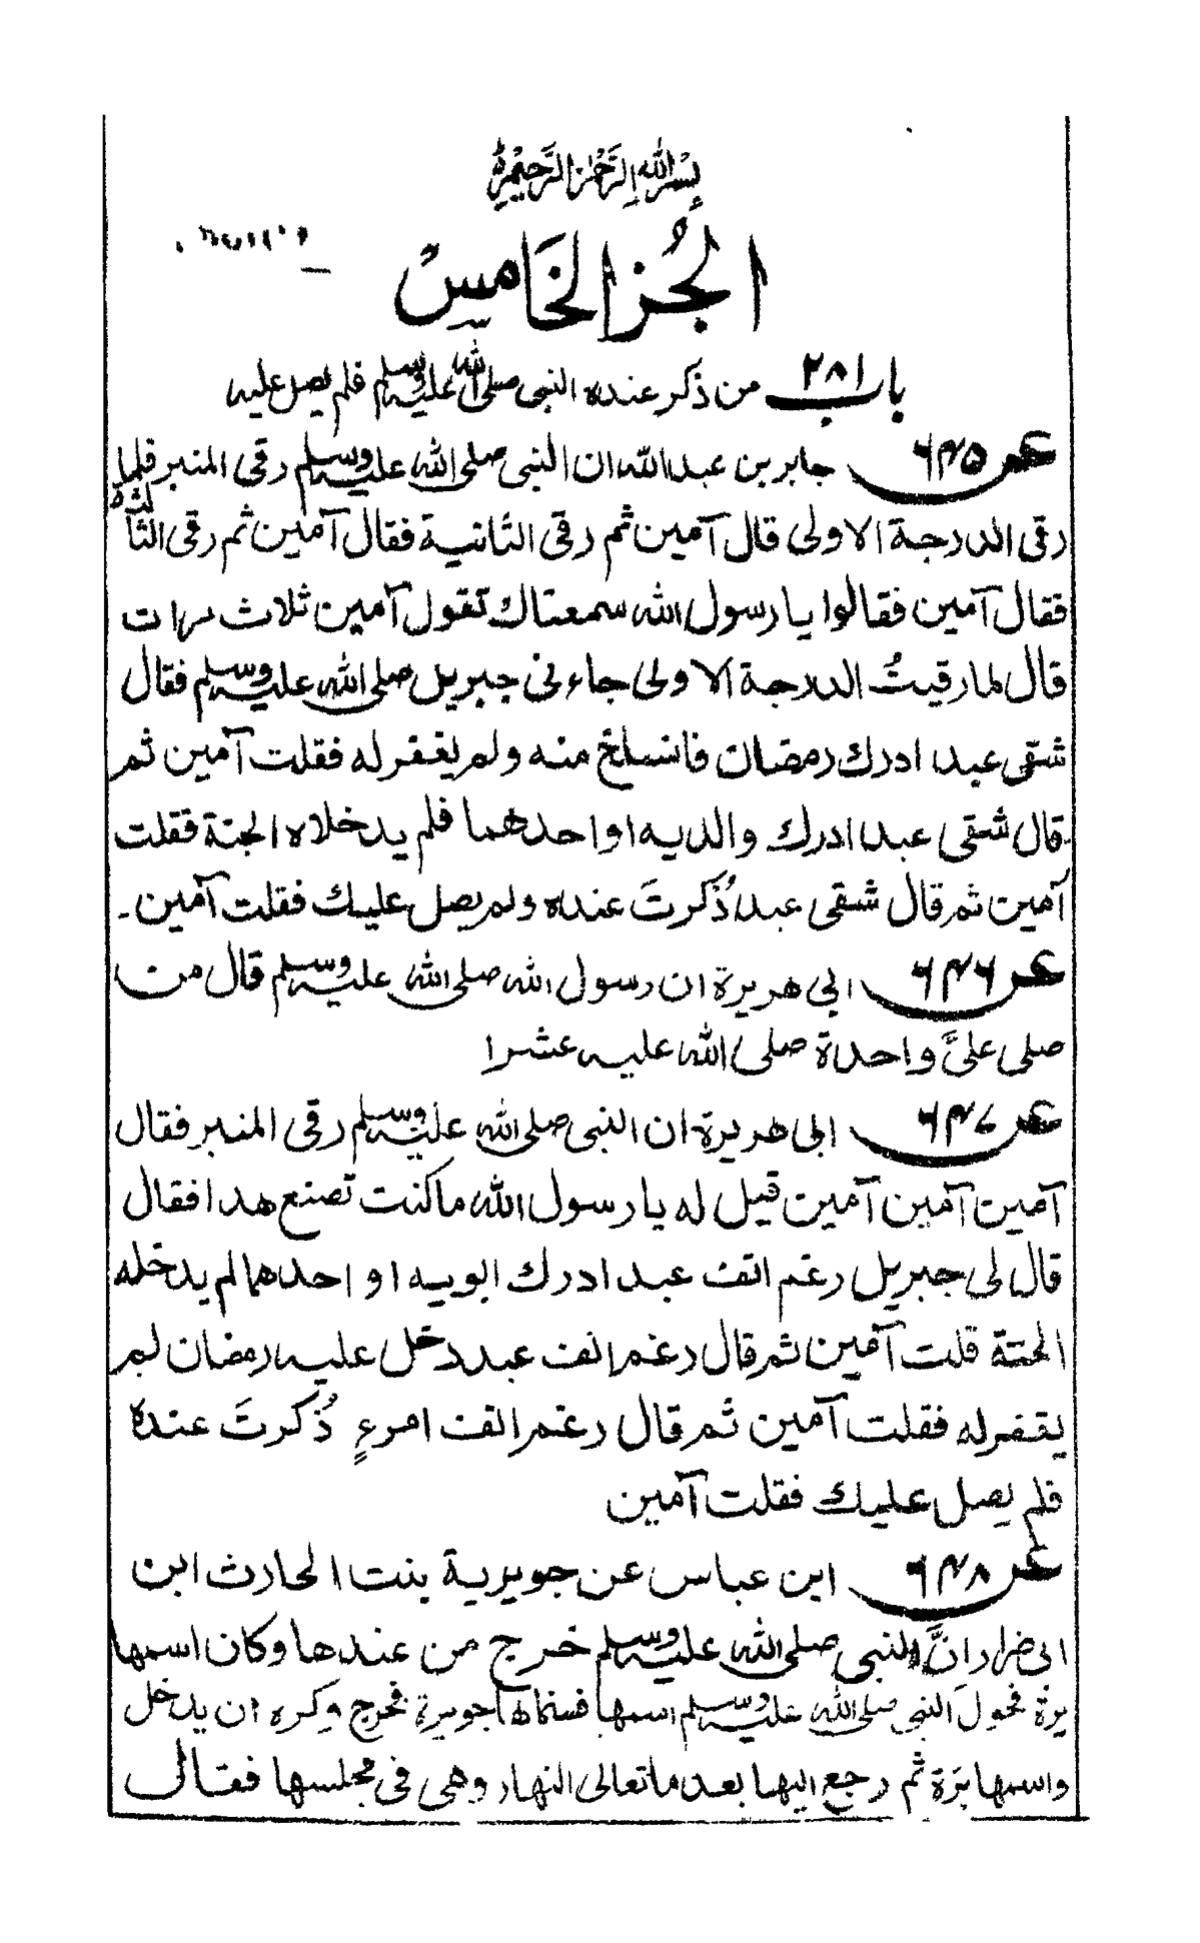 بِسْمِ اللهِ الرَّحْمٰنِ الرَّحِيْمِ
الجُزء الخَامِسْ
باب ٢٨١ من ذكر عنده النبى صلى الله عليه وسلم فلم يصل عليه
عن ٦٤٥ جابر بن عبد الله ان النبى صلى الله عليه وسلم رقى المنبر فلما
رقى الدرجة الاولى قال آمين ثم رقى الثانية فقال آمين ثم رقى الثالثة
فقال آمين فقالوا يا رسول الله سمعناك تقول آمين ثلاث مرات
قال لما رقيتُ الدرجة الاولى جاءنى جبريل صلى الله عليه وسلم فقال
شقى عبد ادرك رمضان فانسلخ منه ولم يغفر له فقلت آمين ثم
قال شقى عبد ادرك والديه او احدهما فلم يدخلاه الجنة فقلت
آمين ثم قال شقى عبد ذُكرتَ عنده ولم يصل عليك فقلت آمين ۔
عن ٦٤٦ ابى هريرة ان رسول الله صلى الله عليه وسلم قال من
صلى علىَّ واحدة صلى الله عليه عشرا
عن ٦٤٧ ابى هريرة ان النبى صلى الله عليه وسلم رقى المنبر فقال
آمين آمين آمين قيل له يا رسول الله ما كنت تصنع هذا فقال
قال لى جبريل رغم انف عبد ادرك ابويه او احدهما لم يدخله
الجنة قلت آمين ثم قال رغم انف عبد دخل عليه رمضان لم
يغفر له فقلت آمين ثم قال رغم انف امرءٍ ذُكرتَ عنده
فلم يصل عليك فقلت آمين
عن ٦٤٨ ابن عباس عن جويرية بنت الحارث ابن
ابى ضرار انَّ النبى صلى الله عليه وسلم خرج من عندها وكان اسمها
برة فحول النبى صلى الله عليه وسلم اسمها فسماها جويرية فخرج وكره ان يدخل
واسمها برة ثم رجع اليها بعد ما تعالى النهار وهى فى مجلسها فقال